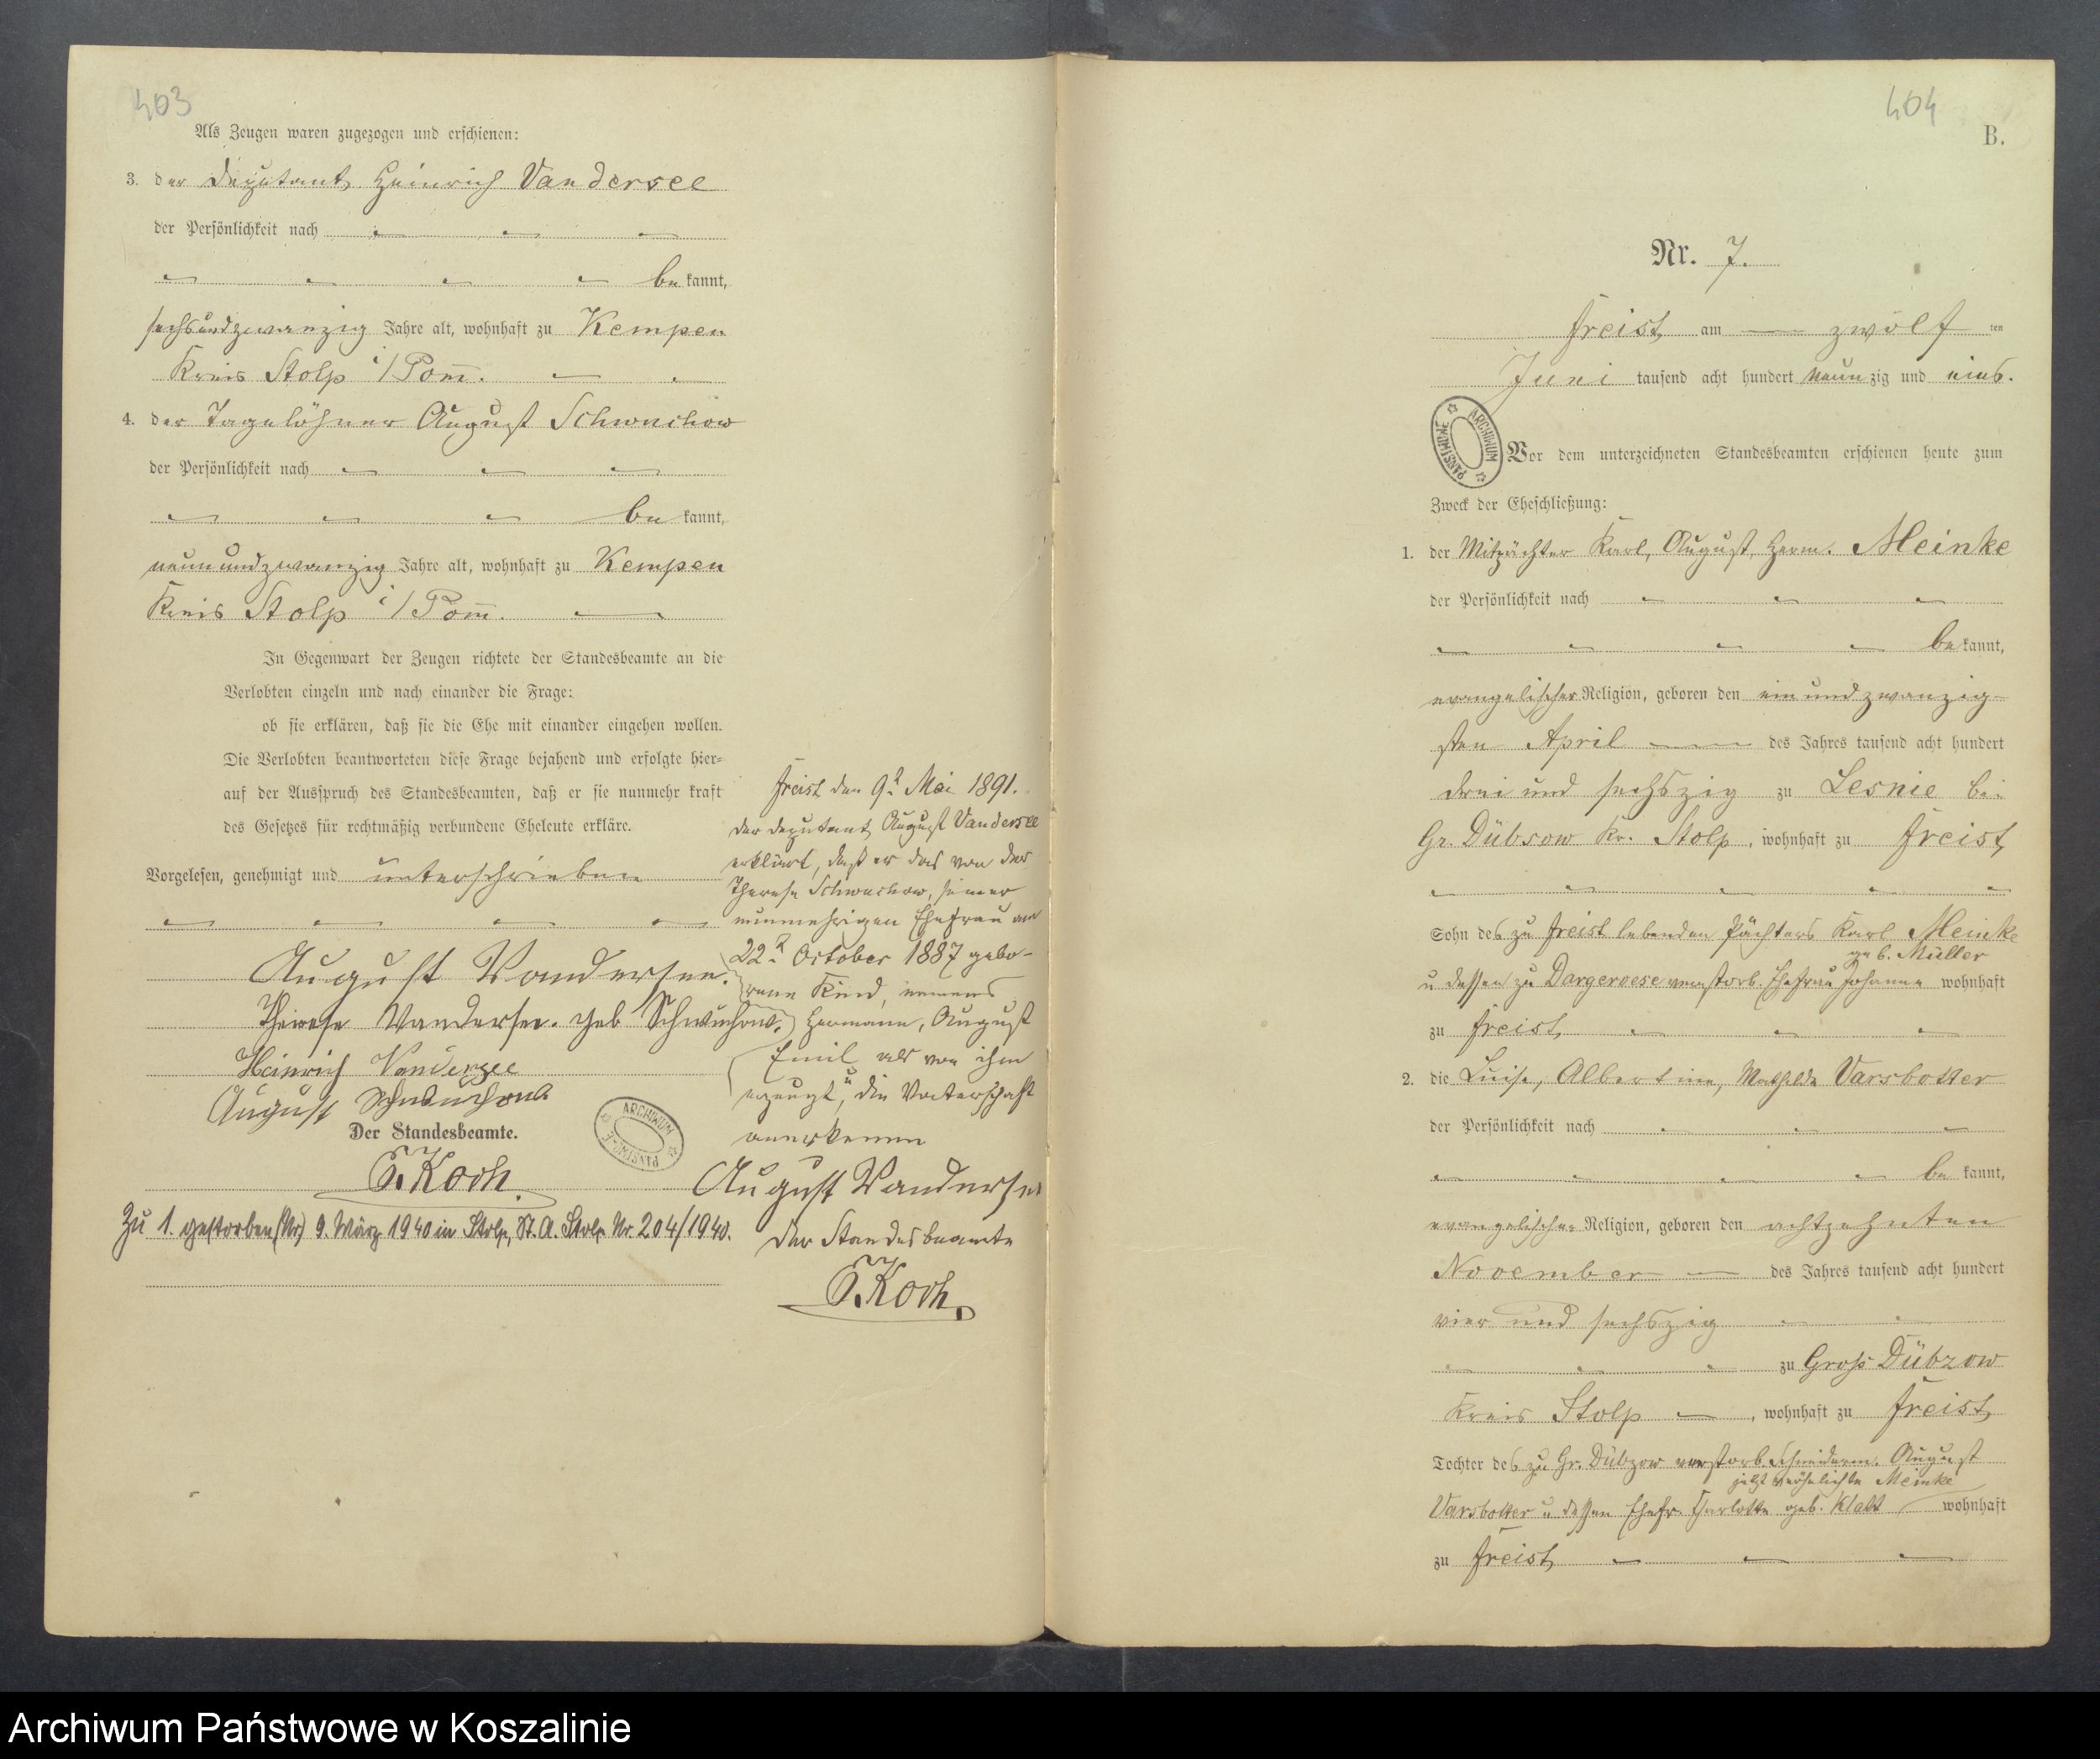 403
Als Zeugen waren zugezogen und erschienen:
3. der Deputant Heinrich Vandersee
der Persönlichkeit nach
be kannt,
sechsundzwanzig Jahre alt, wohnhaft zu Kempen
Kreis Stolp i/Pom̅.
4. der Tagelöhner August Schwuchow
der Persönlichkeit nach
be kannt,
neunundzwanzig Jahre alt, wohnhaft zu Kempen
Kreis Stolp i/Pom̅.
In Gegenwart der Zeugen richtete der Standesbeamte an die
Verlobten einzeln und nach einander die Frage:
ob sie erklären, daß sie die Ehe mit einander eingehen wollen.
Die Verlobten beantworteten diese Frage bejahend und erfolgte hier-
auf der Ausspruch des Standesbeamten, daß er sie nunmehr kraft
des Gesetzes für rechtmäßig verbundene Eheleute erkläre.
Vorgelesen, genehmigt und unterschrieben
August Vandersee.
Therese Vandersee. geb Schwuchow.
Heinrich Vandersee
August Schwuchow
Der Standesbeamte.
Koch.
ARCHIWUM PAŃSTWOWE
Zu 1. gestorben (Nr) 9. März 1940 in Stolp, St. A. Stolp Nr. 204/1940.
Freist den 9t Mai 1891.
Der Deputant August Vandersee
erklärt, daß er das von der
Therese Schwuchow, seiner
nunmehrigen Ehefrau am
22t October 1887 gebo-
rene Kind, namens
Hermann, August
Emil als von ihm
erzeugt, u die Vaterschaft
anerkenne
August Vandersee
Der Standesbeamte
Koch.
404
B.
Nr. 7.
Freist am zwölf ten
Juni tausend acht hundert neunzig und eins.
ARCHIWUM PAŃSTWOWE
Vor dem unterzeichneten Standesbeamten erschienen heute zum
Zweck der Eheschließung:
1. der Mitpächter Karl, August, Herm. Meinke
der Persönlichkeit nach
be kannt,
evangelischer Religion, geboren den ein und zwanzig-
sten April des Jahres tausend acht hundert
drei und sechszig zu Lesnie bei
Gr. Dübsow Kr. Stolp, wohnhaft zu Freist
Sohn des zu Freist lebenden Pächters Karl Meinke
geb. Müller
u dessen zu Dargeroese verstorb. Ehefrau Johanne wohnhaft
zu Freist
2. die Luise, Albertine, Mathilde Varsbotter
der Persönlichkeit nach
be kannt,
evangelischer Religion, geboren den achtzehnten
November des Jahres tausend acht hundert
vier und sechszig
zu Groß Dübzow
Kreis Stolp, wohnhaft zu Freist
Tochter des zu Gr. Dübzow verstorb. Schneiderm. August
jetzt verehelichte Meinke
Varsbotter u dessen Ehefr. Charlotte geb. Klatt wohnhaft
zu Freist
Archiwum Państwowe w Koszalinie